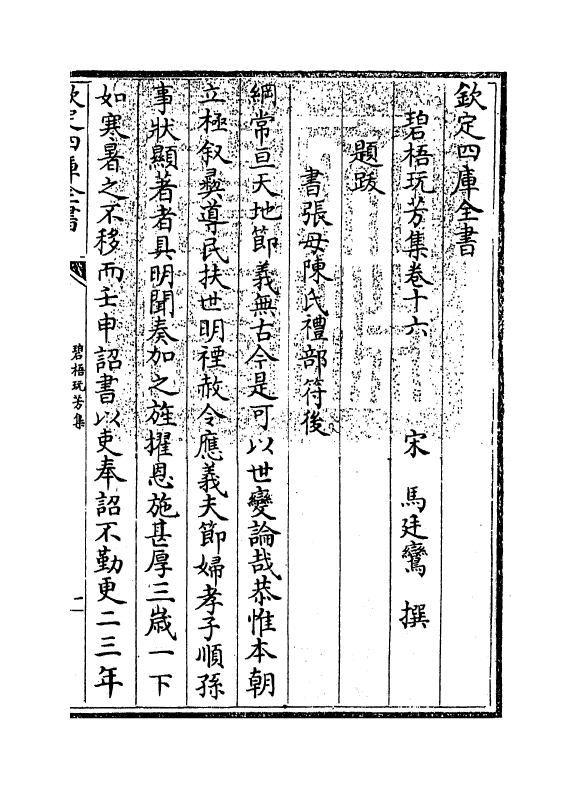 欽定四庫全書
碧梧玩芳集卷十六
宋 馬廷鸞 撰
題跋
書張母陳氏禮部符後
綱常亘天地節義無古今是可以世變論哉恭惟本朝
立極叙彛導民扶世明禋赦令應義夫節婦孝子順孫
事狀顯著者具明聞奏加之旌擢恩施甚厚三歲一下
如寒暑之不移而壬申詔書以吏奉詔不勤更二三年
欽定四庫全書
碧梧玩芳集